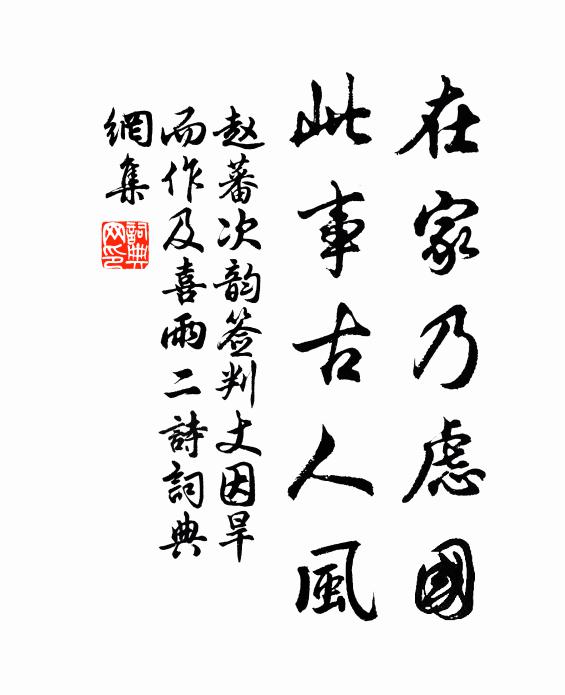 在家乃慮國
此事古人風
赵蕃次韵签判丈因旱
而作及喜雨二詩詞典
網集
詞典網印